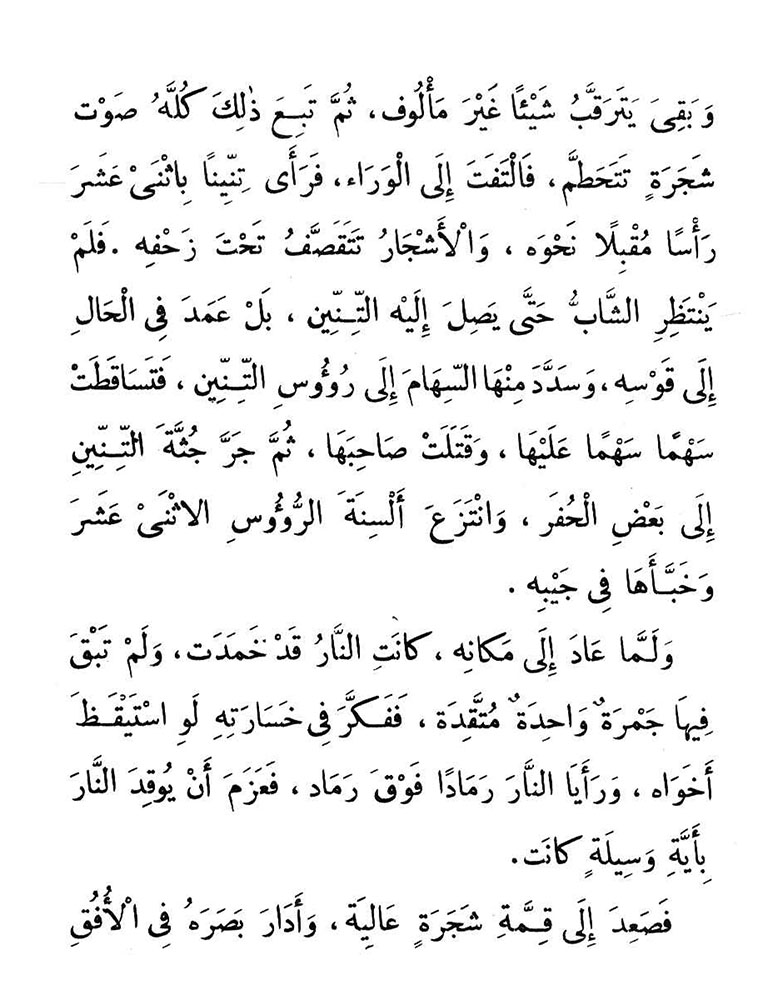 وَبَقِىَ يَتَرَقَّبُ شَيْئًا غَيْرَ مَأْلُوف، ثُمَّ تَبِعَ ذٰلِكَ كُلَّهُ صَوْت
شَجَرَةٍ تَتَحَطَّم، فَالْتَفَتَ إِلَى الْوَرَاء، فَرَأَى تِنِّينًا بِاثْنَىْ عَشَرَ
رَأْسًا مُقْبِلًا نَحْوَه، وَالْأَشْجَارُ تَتَقَصَّفُ تَحْتَ زَحْفِه. فَلَمْ
يَنْتَظِرِ الشَّابُّ حَتَّى يَصِلَ إِلَيْه التِّنِّين، بَلْ عَمَدَ فِى الْحَالِ
إِلَى قَوْسِه، وَسَدَّدَ مِنْهَا السِّهَامَ إِلَى رُؤُوسِ التِّنِّين، فَتَسَاقَطَتْ
سَهْمًا سَهْمًا عَلَيْهَا، وَقَتَلَتْ صَاحِبَهَا، ثُمَّ جَرَّ جُثَّةَ التِّنِّينِ
إِلَى بَعْضِ الْحُفَر، وَانْتَزَعَ أَلْسِنَةَ الرُّؤُوسِ الاثْنَىْ عَشَرَ
وَخَبَّأَهَا فِى جَيْبِه.
وَلَمَّا عَادَ إِلَى مَكَانِه، كَانَتِ النَّارُ قَدْ خَمَدَت، وَلَمْ تَبْقَ
فِيهَا جَمْرَةٌ وَاحِدَةٌ مُتَّقِدَة، فَفَكَّرَ فِى خَسَارَتِهِ لَوِ اسْتَيْقَظَ
أَخَوَاه، وَرَأَيَا النَّارَ رَمَادًا فَوْقَ رَمَاد، فَعَزَمَ أَنْ يُوقِدَ النَّارَ
بِأَيَّةِ وَسِيلَةٍ كَانَت.
فَصَعِدَ إِلَى قِمَّةِ شَجَرَةٍ عَالِيَة، وَأَدَارَ بَصَرَهُ فِى الْأُفُقِ